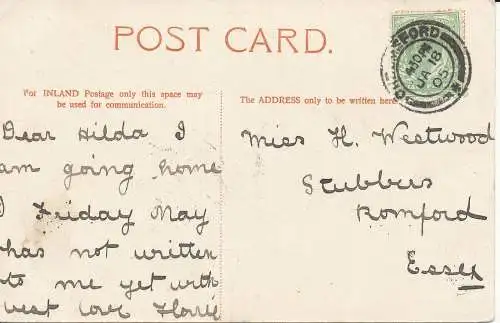 POST CARD.
FORD
JA 18
05
For INLAND Postage only this space may
be used for communication.
The ADDRESS only to be written here.
Dear Hilda I
am going home
Friday May
has not written
to me yet with
west love Florrie
Miss H. Westwood
Stubbers
Romford
Essex